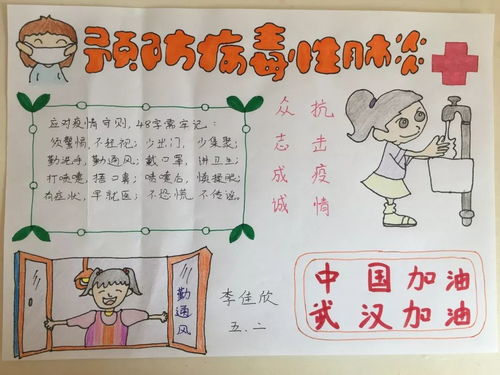 预防病毒性肺炎
应对疫情守则,48字需牢记:
须警惕,不轻视;少出门,少集聚;
勤洗手,勤通风;戴口罩,讲卫生;
打喷嚏,捂口鼻;喷嚏后,慎揉眼;
有症状,早就医;不恐慌,不传谣。
抗击疫情
众志成城
勤通风
李佳欣
五.二
中国加油
武汉加油